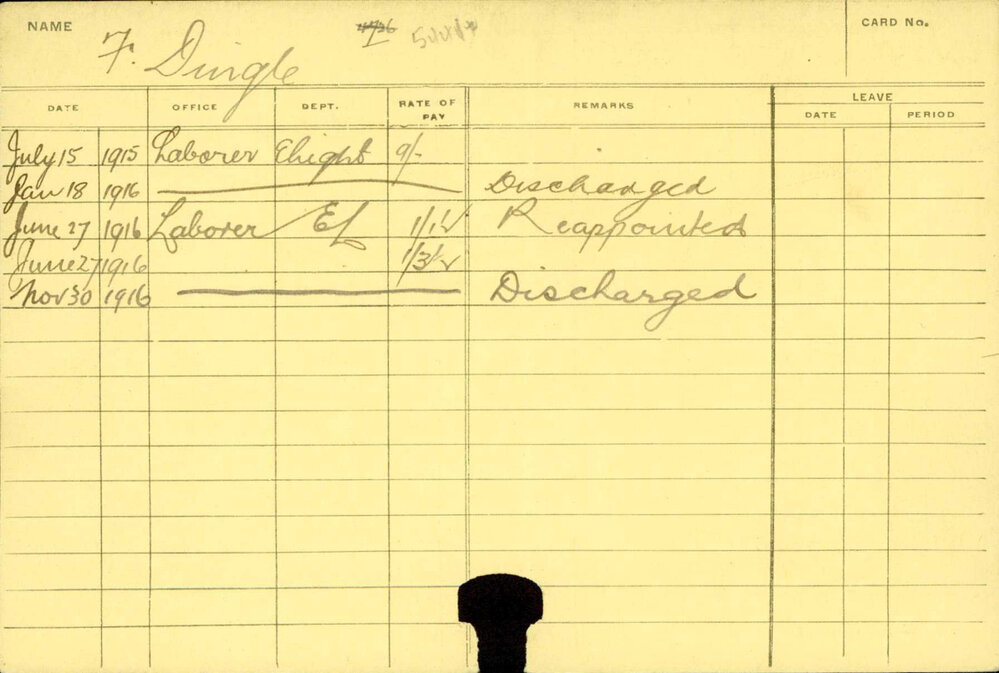 NAME
CARD No.
F. Dingle
DATE OFFICE DEPT. RATE OF PAY REMARKS LEAVE
DATE PERIOD
July 15 1915 Laborer Elight 9/-
Jan 18 1916 Discharged
June 27 1916 Laborer EL 1/1½ Reappointed
June 27 1916 1/3½
Nov 30 1916 Discharged